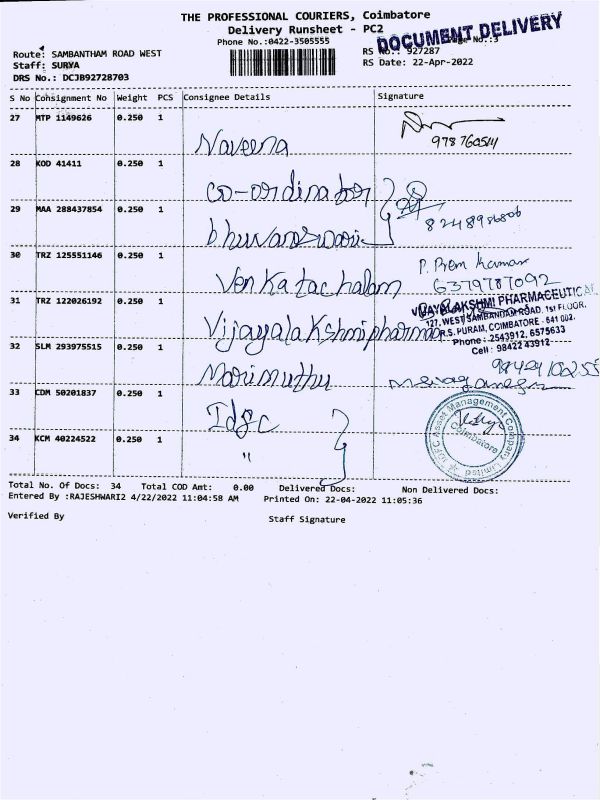 THE PROFESSIONAL COURIERS, Coimbatore
Delivery Runsheet - PC2
DOCUMENT DELIVERY
Phone No.:0422-3505555
No.:3
Route: SAMBANTHAM ROAD WEST
RS No.: 927287
Staff: SURYA
RS Date: 22-Apr-2022
DRS No.: DCJB92728703
S No Consignment No Weight PCS Consignee Details Signature
27 MTP 1149626 0.250 1 Naveena
28 KOD 41411 0.250 1 co-ordinator
29 MAA 288437854 0.250 1 bhuvaneswari
30 TRZ 125551146 0.250 1 Venkatachalam P. Prem kumar
6379787092
31 TRZ 122026192 0.250 1 Vijayalakshmi pharma
VIJAYALAKSHMI PHARMACEUTICAL
127, WEST SAMBANDAM ROAD, 1st FLOOR,
R.S. PURAM, COIMBATORE - 641 002.
Phone : 2543912, 6575633
Cell : 98422 43912
32 SLM 293975515 0.250 1 Marimuthu
33 CDM 50201837 0.250 1 Idfc
IDFC Asset Management Company Limited
Coimbatore
34 KCM 40224522 0.250 1 "
Total No. Of Docs: 34 Total COD Amt: 0.00 Delivered Docs: Non Delivered Docs:
Entered By :RAJESHWARI2 4/22/2022 11:04:58 AM Printed On: 22-04-2022 11:05:36
Verified By Staff Signature